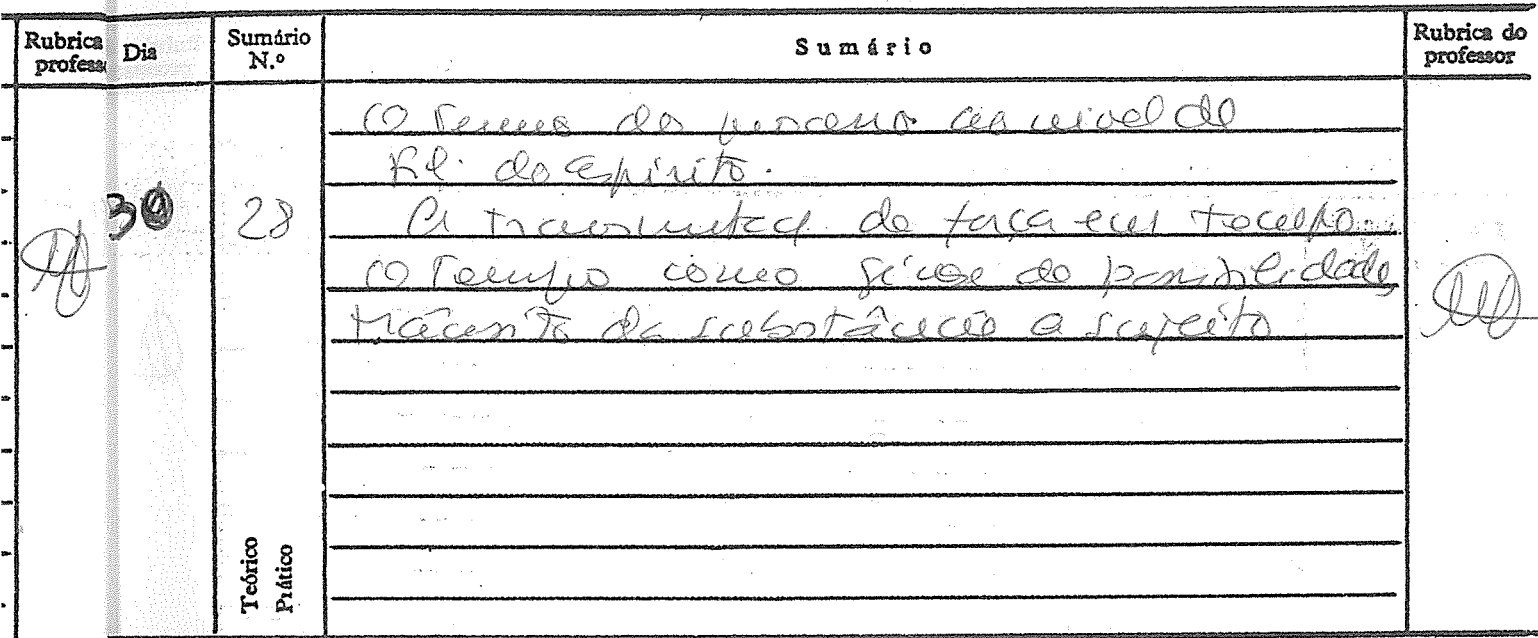 Rubrica
profess
Dia
Sumário
N.º
Sumário
Rubrica do
professor
O termo do processo ao nivel do
do espirito.
30
28
A de força em tempo.
O Tempo como de possibilidade
da substância a sujeito
Teórico
Prático